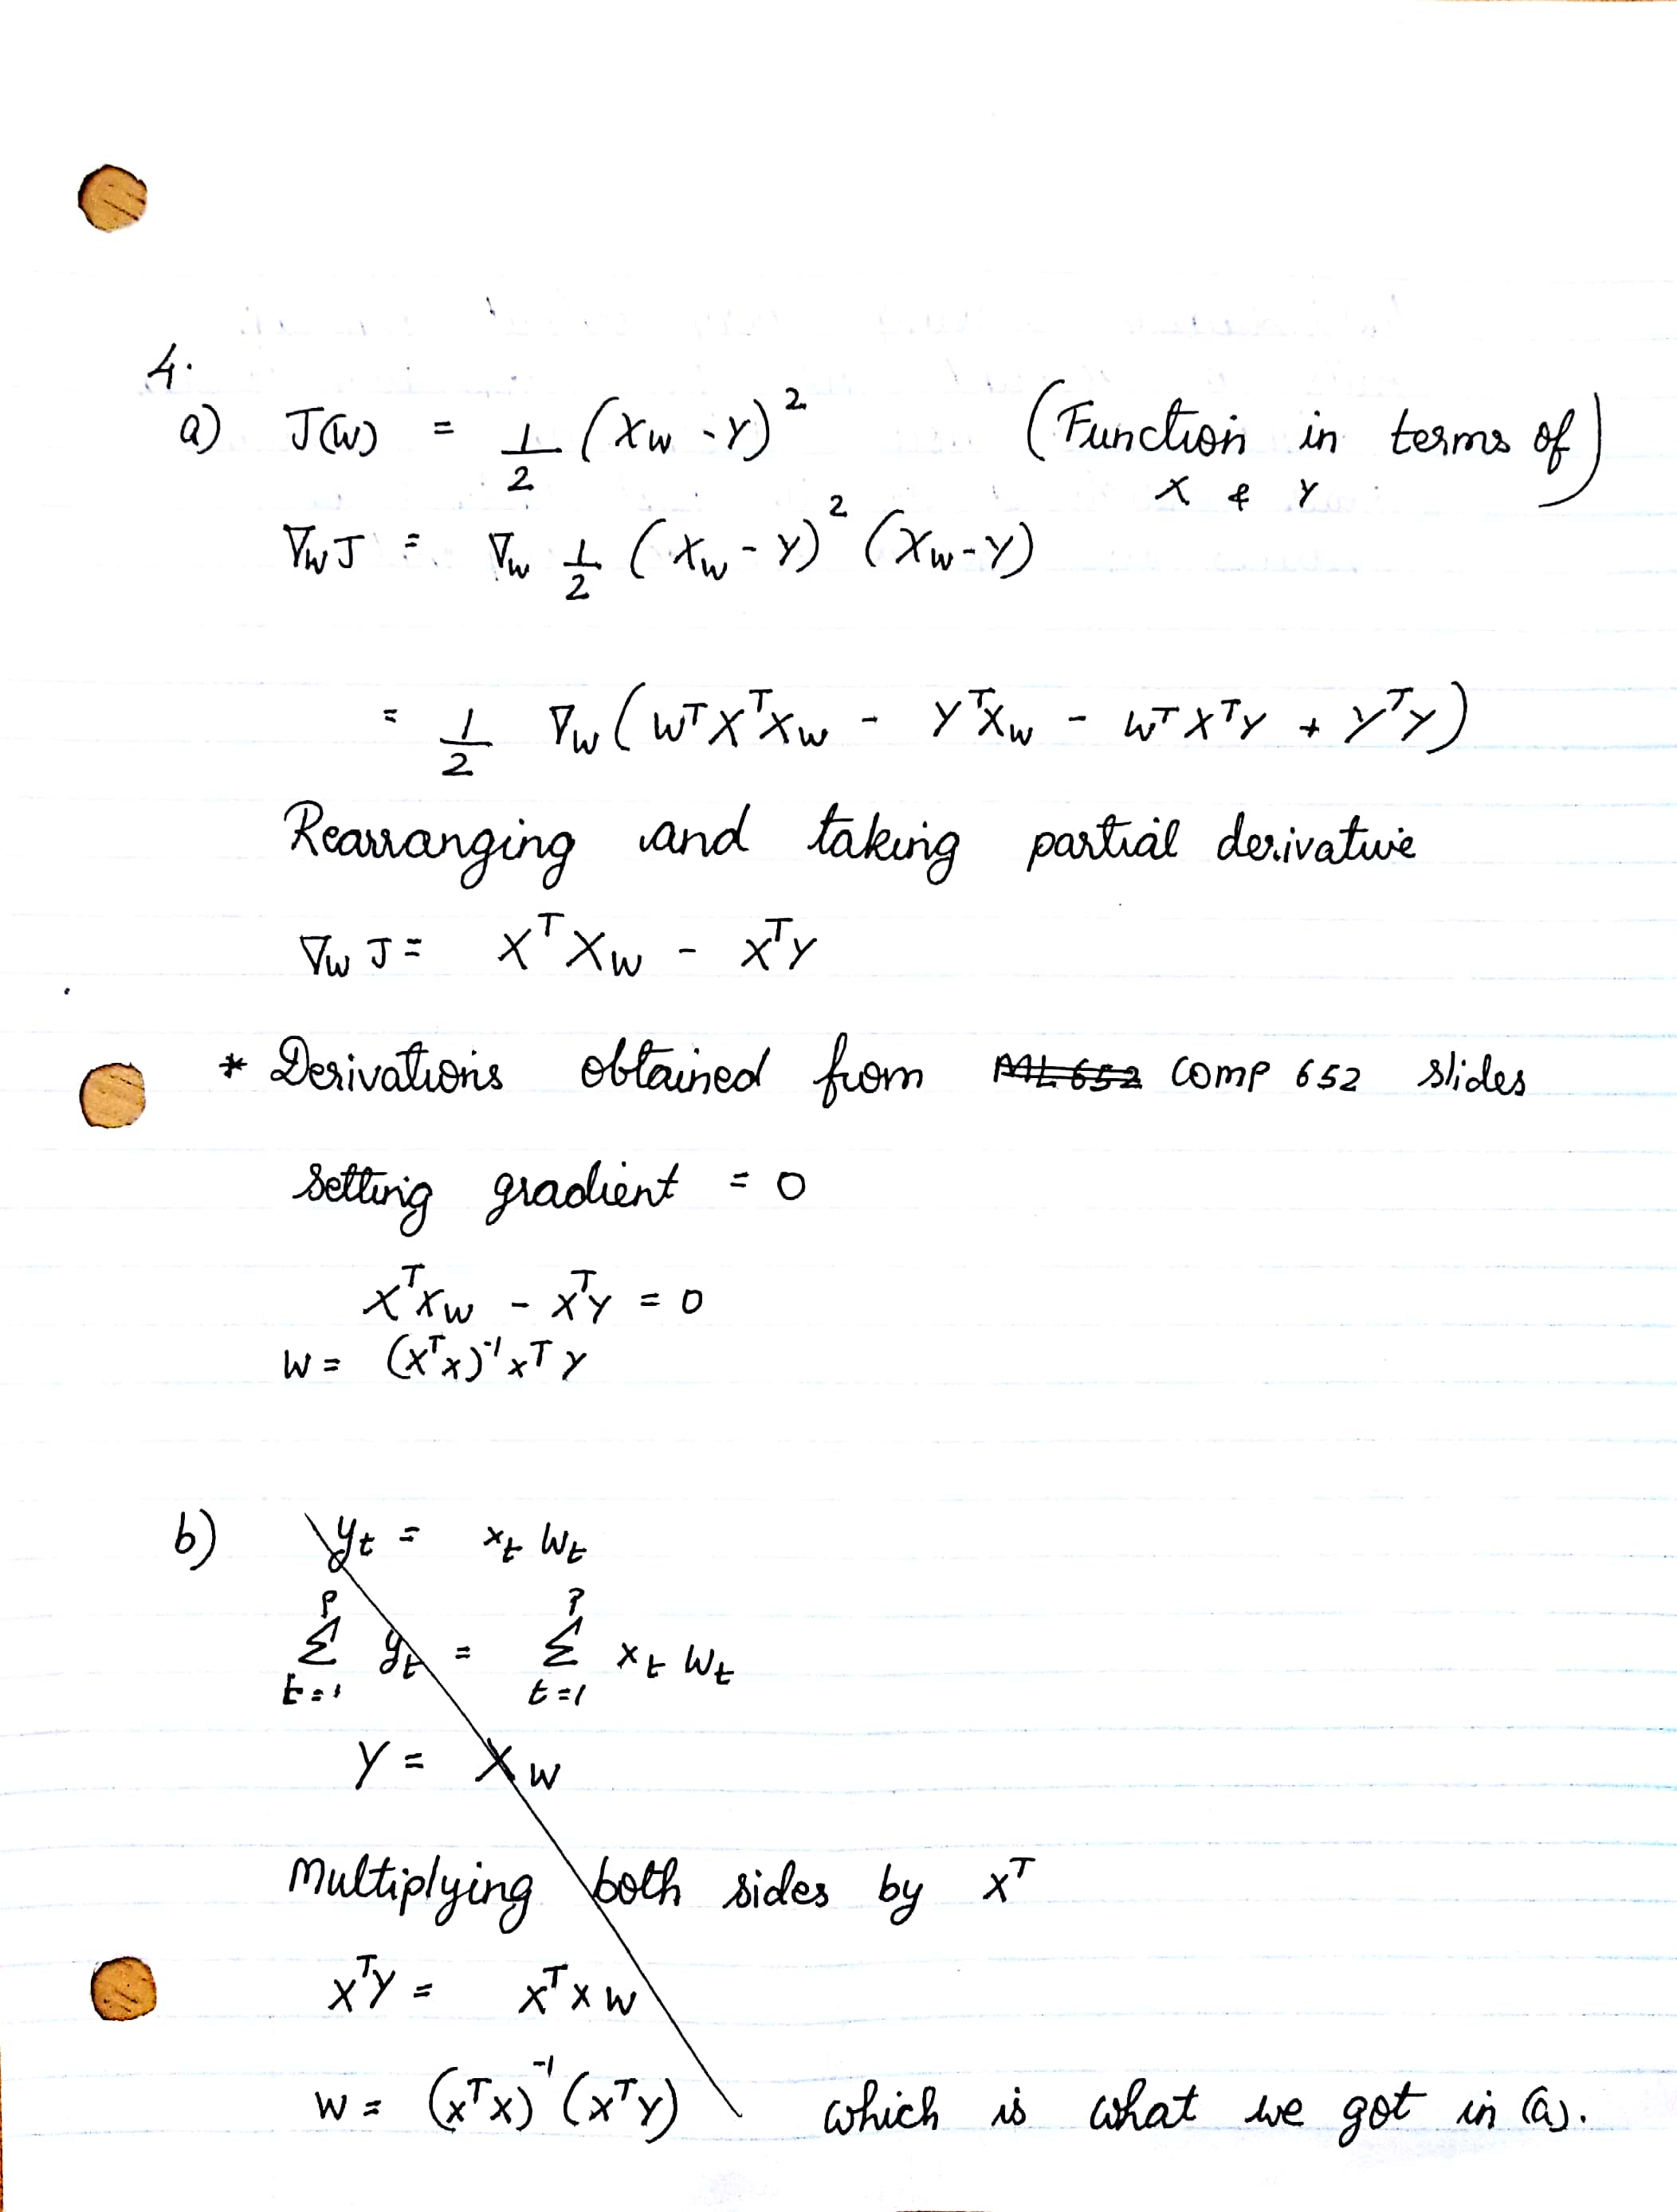 4.
a) J(w) = 1/2 (Xw - Y)² (Function in terms of X & Y)
∇w J = ∇w 1/2 (Xw - Y)² (Xw - Y)
= 1/2 ∇w (wᵀXᵀXw - YᵀXw - wᵀXᵀY + YᵀY)
Rearranging and taking partial derivative
∇w J = XᵀXw - XᵀY
* Derivations obtained from ML 652 COMP 652 slides
Setting gradient = 0
XᵀXw - XᵀY = 0
w = (XᵀX)⁻¹XᵀY
b) yₜ = xₜ wₜ
Σ_{t=1}^{P} yₜ = Σ_{t=1}^{P} xₜ wₜ
Y = Xw
Multiplying both sides by Xᵀ
XᵀY = XᵀXw
w = (XᵀX)⁻¹(XᵀY) which is what we got in (a).